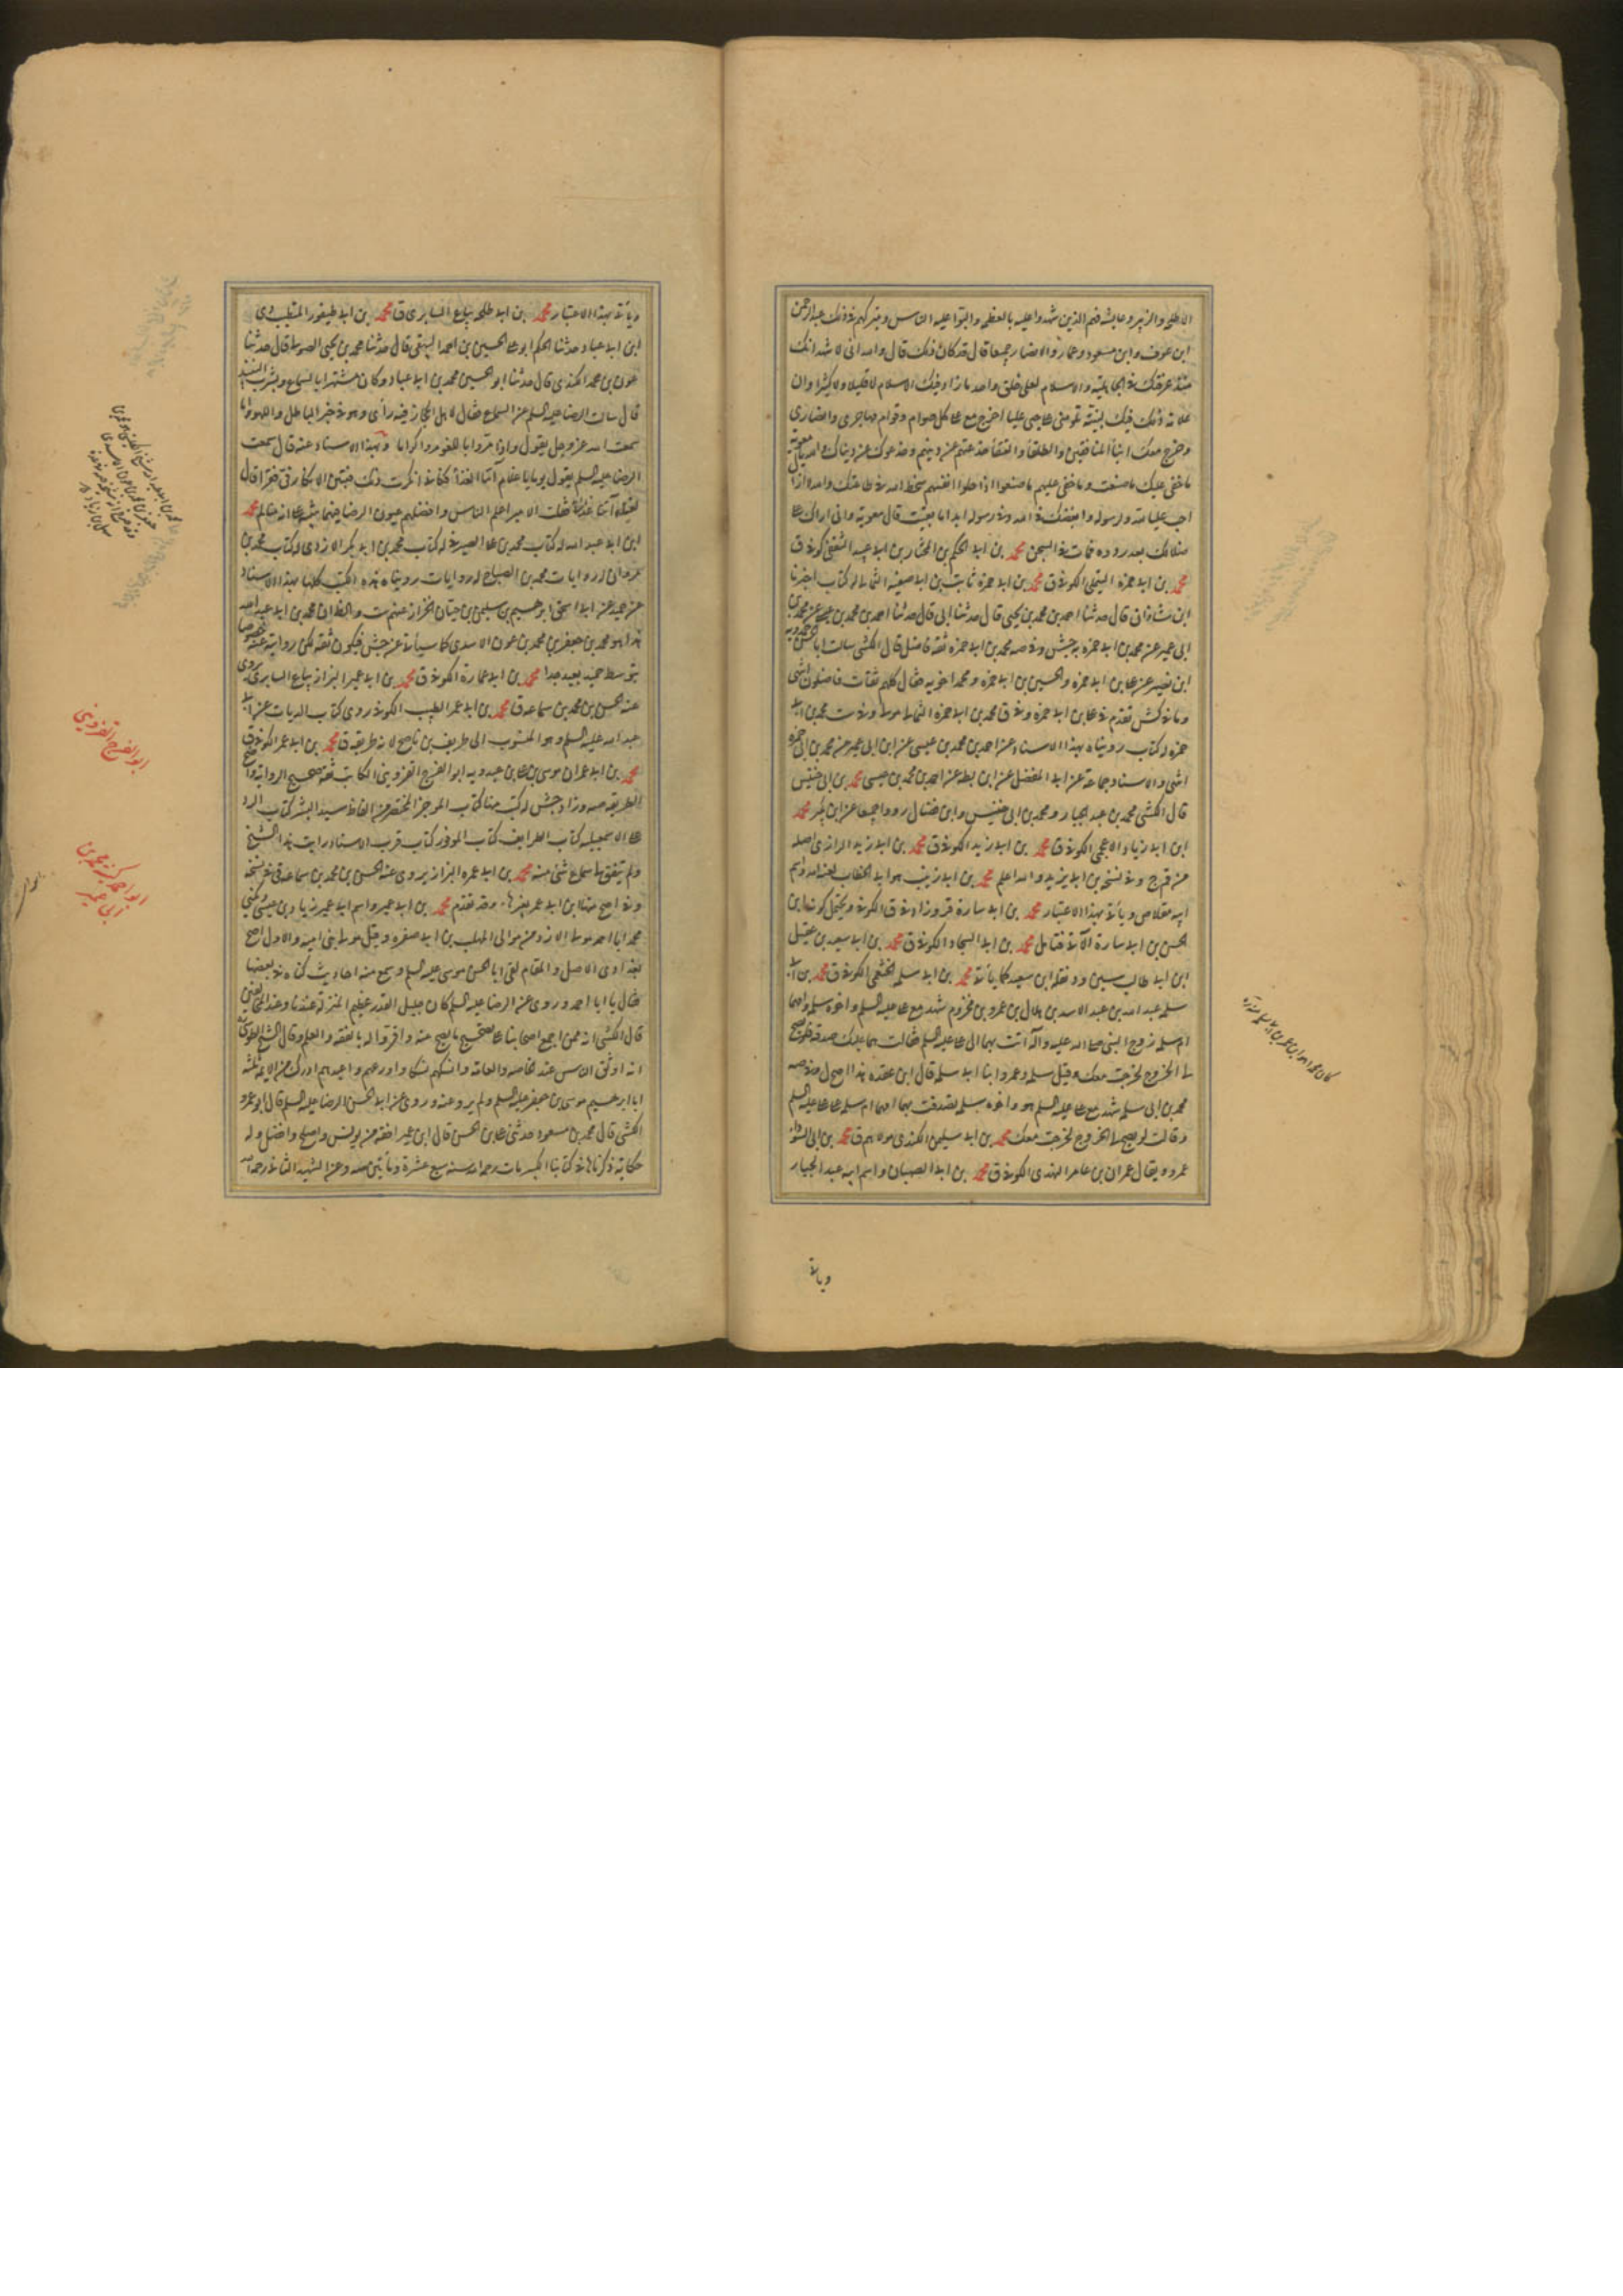 الا طلحة والزبير وعايشه فهم الذين شهدوا عليه بالعظيم والبوا عليه الناس وشركهم في ذلك عبدالرحمن
ابن عوف وابن مسعود وعمار والانصار جميعا قال قد كان ذلك قال والله انى لاشهد انك
منذ عرفتك في الجاهلية والاسلام لعلى خلق واحد ما زاد فيك الاسلام لا قليلا ولا كثيرا وان
علامة ذلك فيك لبينة تلومنى على حبى عليا خرج مع على كل صوام وقوام مهاجرى وانصارى
وخرج معك ابناء المنافقين والطلقاء والعتقاء خدعتهم عن دينهم وخدعوك عن دنياك والله يا معوية
ما خفى عليك ما صنعت وما خفى عليهم ما صنعوا اذ احلوا انفسهم سخط الله في طاعتك والله لا ازال
احب عليا لله ولرسوله وابغضك في الله وفي رسوله ابدا ما بقيت قال معوية وانى اراك على
ضلالك بعد ردوه فمات في السجن محمد بن ابى الحكم بن المختار بن ابى عبيد الثقفى كوفى ق
محمد بن ابى حمزه التيملى الكوفى ق محمد بن ابى حمزة ثابت بن ابى صفيه الثمالى له كتاب اخبرنا
ابن شاذان قال حدثنا احمد بن محمد بن يحيى قال حدثنا ابى قال حدثنا احمد بن محمد بن عيسى عن محمد بن
ابى عمير عن محمد بن ابى حمزه به جش وفى صه محمد بن ابى حمزه ثقة فاضل قال الكشى سالت ابا الحسن حمدويه
ابن نصير عن على بن ابى حمزه والحسين بن ابى حمزه ومحمد اخويه فقال كلهم ثقات فاضلون انتهى
وما في كش تقدم في على بن ابى حمزه وفى ق محمد بن ابى حمزه الثمالى مولى وفى ست محمد بن ابى
حمزه له كتاب رويناه بهذا الاسناد عن احمد بن محمد بن عيسى عن ابن ابى عمير عن محمد بن ابى حمزه
انتهى والاسناد جماعة عن ابى المفضل عن ابن بطه عن احمد بن محمد بن عيسى محمد بن ابى خنيس
قال الكشى محمد بن عبد الجبار ومحمد بن ابى خنيس وابن فضال رووا جميعا عن ابن بكير محمد
ابن ابى زياد الاعجمى الكوفى ق محمد بن ابى زيد الكوفى ق محمد بن ابى زيد الرازى اصله
من قم ج وفى نسخة بن ابى يزيد والله اعلم محمد بن ابى زينب هو ابو الخطاب لعنه الله واسم
ابيه مقلاص وياتى بهذا الاعتبار محمد بن ابى سارة قر وزاد في ق الكوفى ويحتمل كونه ابن
الحسن بن ابى سارة الآتى فتامل محمد بن ابى السجاد الكوفى ق محمد بن ابى سعيد بن عقيل
ابن ابى طالب سين وفى نقله ابن سعيد كما ياتى محمد بن ابى سلمه الخثعمى الكوفى ق محمد بن ابى
سلمه عبد الله بن عبد الاسد بن هلال بن عمرو بن مخزوم شهد مع على عليه السلم واخوه سلمه وامهما
ام سلمه زوج النبى صلى الله عليه وآله اتت بهما الى على عليه السلم فقالت هما عليك صدقة فلو يصح
لى الخروج لخرجت معك وقيل سلمه وعمر وابنا ابى سلمه قال ابن عقده هذا اصح ل وفى صه
محمد بن ابى سلمه شهد مع على عليه السلم هو واخوه سلمه تصدقت بهما امهما ام سلمه على على عليه السلم
وقالت لو يصح لى الخروج لخرجت معك محمد بن ابى سليمن الكندى مولاهم ق محمد بن ابى السوار
عمرو ويقال عمران بن عامر النهدى الكوفى ق محمد بن ابى الصهبان واسم ابيه عبد الجبار
وياتى
وياتى بهذا الاعتبار محمد بن ابى طلحه بياع السابرى ق محمد بن ابى طيفور المتطبب دى
ابن ابى عباد حدثنا الحكم ابو على الحسين بن احمد البيهقى قال حدثنا محمد بن يحيى الصولى قال حدثنا
عون بن محمد الكندى قال حدثنا ابو الحسين محمد بن ابى عباد وكان مشتهرا بالسماع وبشرب النبيذ
قال سالت الرضا عليه السلم عن السماع فقال لاهل الحجاز فيه رأى وهو في حيز الباطل واللهو اما
سمعت الله عز وجل يقول واذا مروا باللغو مروا كراما وبهذا الاسناد عنه قال سمعت
الرضا عليه السلم يقول يوما يا غلام آتنا الغداء فكانى انكرت ذلك فتبين الانكار فى فقرأ قال
لفتاه آتنا غداءنا فقلت الامير اعلم الناس وافضلهم عيون الرضا محمد
ابن ابى عبد الله له كتاب محمد بن على الصيرفى له كتاب محمد بن ابى بكر الازدى له كتاب محمد بن
مروان له روايات محمد بن الصباح له روايات روينا هذه الكتب كلها بهذا الاسناد
عن حميد عن ابى اسحق ابرهيم بن سليمن بن حيان الخزاز عنهم ست والظ ان محمد بن ابى عبد الله
هذا هو محمد بن جعفر بن محمد بن عون الاسدى كما سيأتى عن جش فيكون ثقه لكن روايته عنه خصوصا
بتوسط حميد بعيد جدا محمد بن ابى عمارة الكوفى ق محمد بن ابى عمير البزاز بياع السابرى روى
عنه الحسن بن محمد بن سماعه ق محمد بن ابى عمر الطبيب الكوفى روى كتاب الديات عن ابى
عبد الله عليه السلم وهو المنسوب الى طريف بن ناصح لانه طريقه ق محمد بن ابى عمر الكوفى ق
محمد بن ابى عمران موسى بن على بن عبدويه ابو الفرج القزوينى الكاتب ثقه صحيح الرواية واضح
الطريقه صه وزاد جش له كتب منها كتاب الموجز المختصر من الفاظ سيد البشر كتاب الرد
على الاسمعيليه كتاب الطرايف كتاب الموفور كتاب قرب الاسناد رايت هذا الشيخ
ولم يتفق لى سماع شئ منه محمد بن ابى عمره البزاز يروى عنه الحسن بن محمد بن سماعه ق
وقد تقدم محمد بن ابى عمير واسم ابى عمير زياد بن عيسى ويكنى
محمد ابا احمد مولى الازد من موالى المهلب بن ابى صفره وقيل مولى بنى اميه والاول اصح
بغدادى الاصل والمقام لقى ابا الحسن موسى عليه السلم وسمع منه احاديث كناه في بعضها
فقال يا ابا احمد وروى عن الرضا عليه السلم كان جليل القدر عظيم المنزلة عندنا وعند المخالفين
قال الكشى انه ممن اجمع اصحابنا على تصحيح ما يصح عنه واقروا له بالفقه والعلم وقال الشيخ الطوسى
انه اوثق الناس عند الخاصه والعامه وانسكهم نسكا واورعهم واعبدهم ادرك من الائمه ثلثه
ابا ابرهيم موسى بن جعفر عليه السلم ولم يرو عنه وروى عن ابى الحسن الرضا عليه السلم قال ابو عمرو
الكشى قال محمد بن مسعود حدثنى على بن الحسن قال ابن ابى عمير افقه من يونس واصلح وافضل وله
حكايه ذكرناها في كتابنا الكبير مات رحمه الله سنه سبع عشرة ومأتين صه وعن الشهيد الثانى رحمه الله
ابو الفرج القزوينى
ابو احمد كنيه محمد بن
ابى عمير